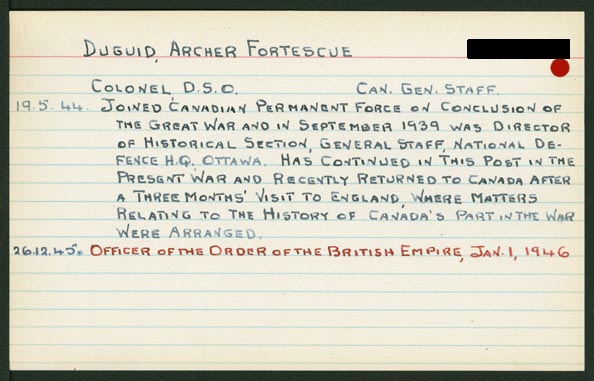 DUGUID, ARCHER FORTESCUE
COLONEL, D.S.O. CAN. GEN. STAFF.
19.5.44. JOINED CANADIAN PERMANENT FORCE ON CONCLUSION OF
THE GREAT WAR AND IN SEPTEMBER 1939 WAS DIRECTOR
OF HISTORICAL SECTION, GENERAL STAFF, NATIONAL DE-
FENCE H.Q. OTTAWA. HAS CONTINUED IN THIS POST IN THE
PRESENT WAR AND RECENTLY RETURNED TO CANADA AFTER
A THREE MONTHS' VISIT TO ENGLAND, WHERE MATTERS
RELATING TO THE HISTORY OF CANADA'S PART IN THE WAR
WERE ARRANGED.
26.12.45. OFFICER OF THE ORDER OF THE BRITISH EMPIRE, JAN. 1, 1946